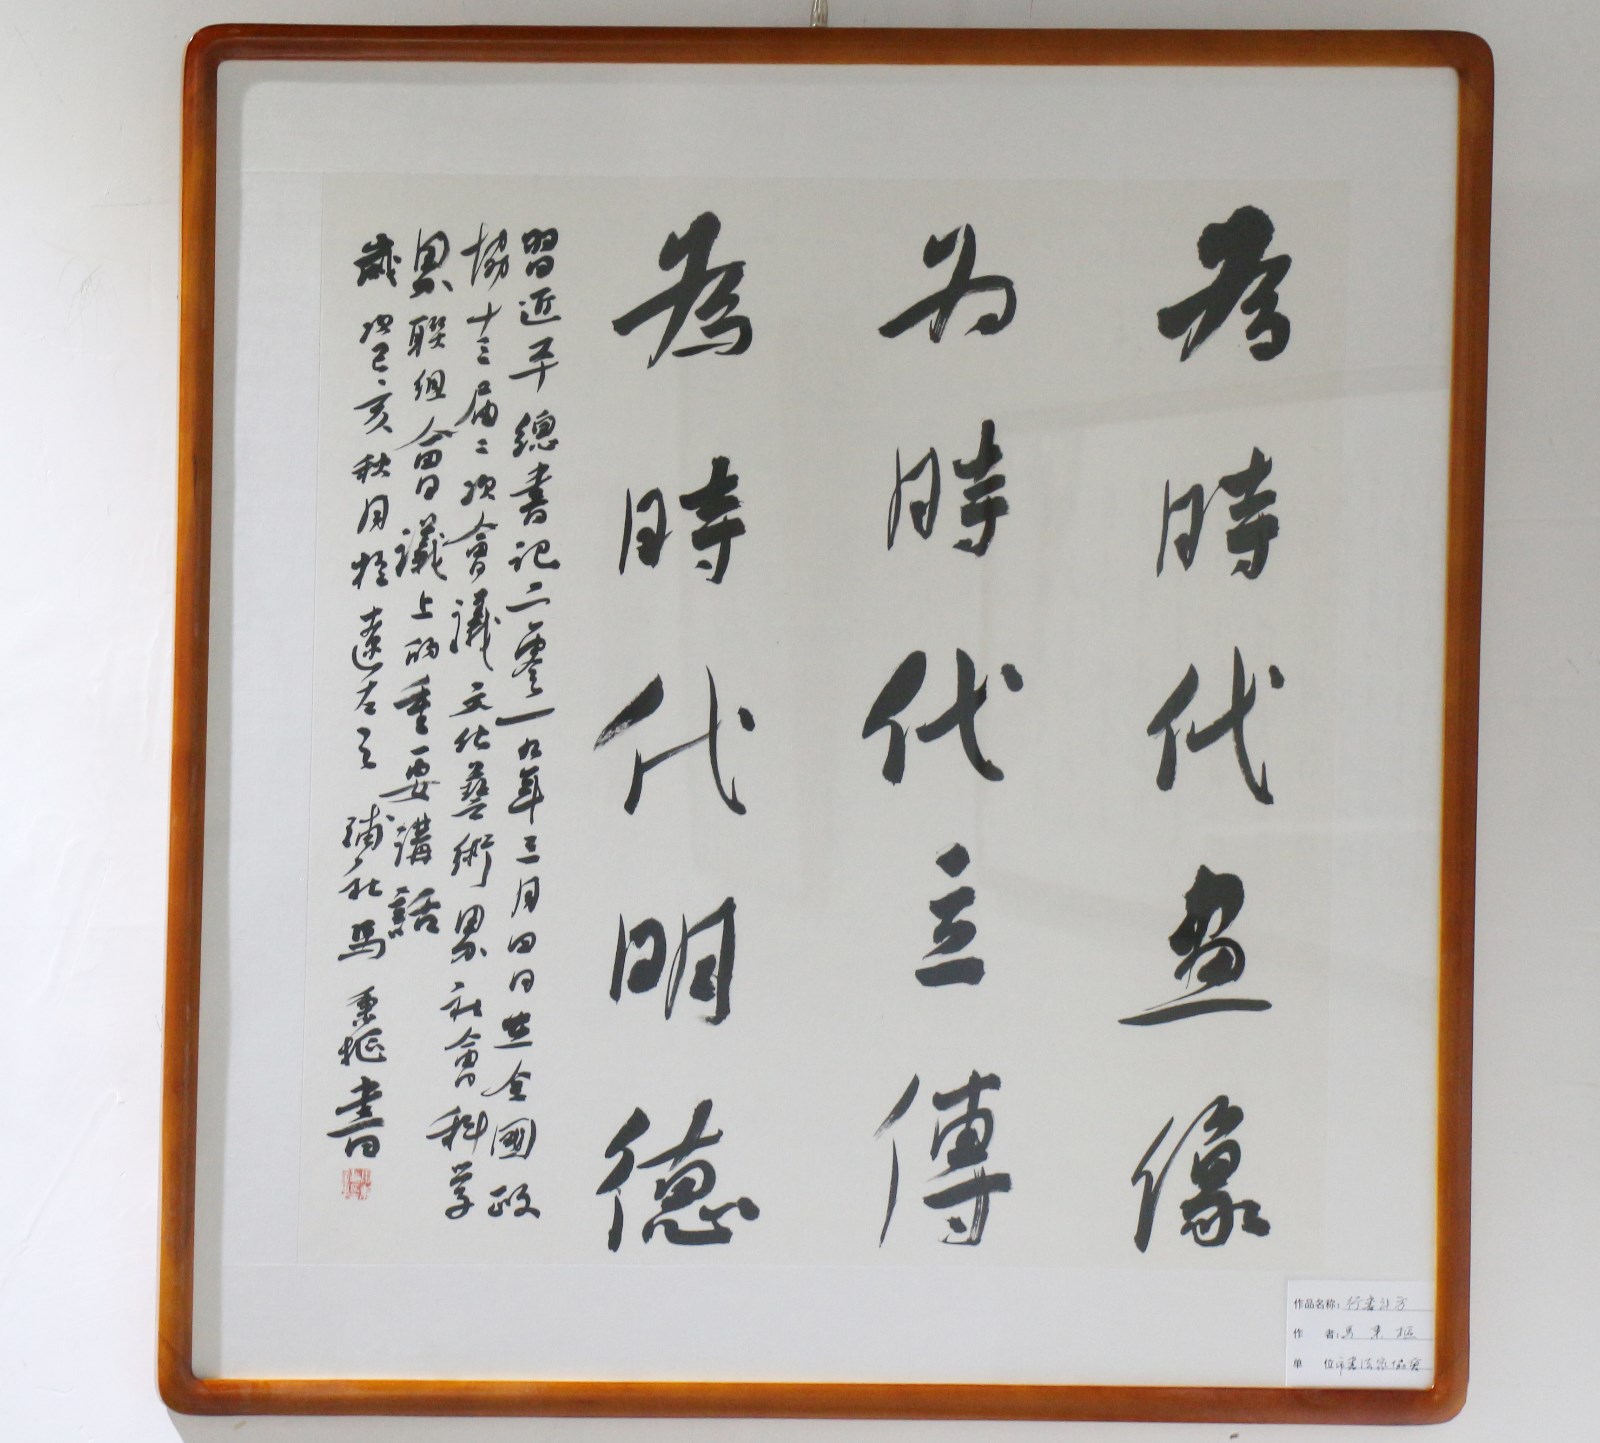 為時代畫像
为時代立傳
為時代明德
習近平總書記二零一九年三月四日在全國政
協十三届二次會議文化藝術界社會科学
界聯組會議上的重要講話
歲次己亥秋月於遼左之 馬秉樞書
作品名称：行書斗方
作 者：馬秉樞
单 位：市書法家協會